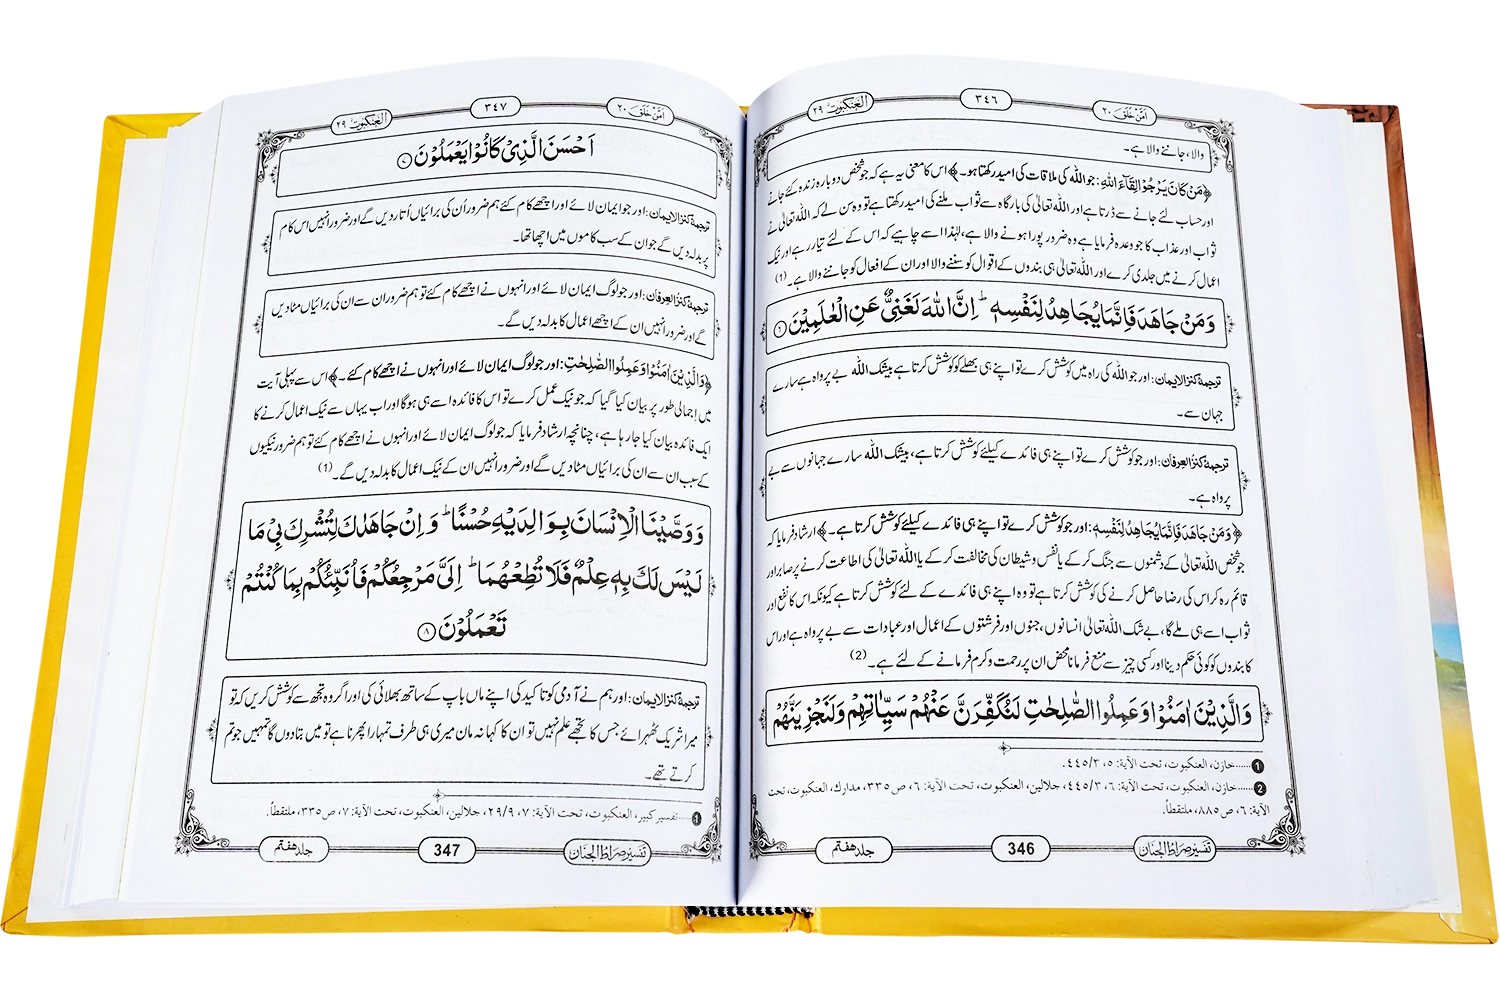 اَمَّنْ خَلَقَ ٢٠
٣٤٦
العنکبوت ٢٩
والا، جاننے والا ہے۔
﴿مَنْ كَانَ يَرْجُوْا لِقَآءَ اللّٰهِ: جو اللہ کی ملاقات کی امید رکھتا ہو۔﴾ اس کا معنی یہ ہے کہ جو شخص دوبارہ زندہ کئے جانے
اور حساب لئے جانے سے ڈرتا ہے اور اللہ تعالیٰ کی بارگاہ سے ثواب ملنے کی امید رکھتا ہے تو وہ سن لے کہ اللہ تعالیٰ نے
ثواب اور عذاب کا جو وعدہ فرمایا ہے وہ ضرور پورا ہونے والا ہے، لہٰذا اسے چاہیے کہ اس کے لئے تیار رہے اور نیک
اعمال کرنے میں جلدی کرے اور اللہ تعالیٰ ہی بندوں کے اقوال کو سننے والا اور ان کے افعال کو جاننے والا ہے۔ (1)
وَمَنْ جَاهَدَ فَاِنَّمَا يُجَاهِدُ لِنَفْسِهٖ ؕ اِنَّ اللّٰهَ لَغَنِيٌّ عَنِ الْعٰلَمِيْنَ ٦
ترجمۂ کنزالایمان: اور جو اللہ کی راہ میں کوشش کرے تو اپنے ہی بھلے کو کوشش کرتا ہے بیشک اللہ بے پرواہ ہے سارے
جہان سے۔
ترجمۂ کنزالعرفان: اور جو کوشش کرے تو اپنے ہی فائدے کیلئے کوشش کرتا ہے، بیشک اللہ سارے جہانوں سے بے
پرواہ ہے۔
﴿وَمَنْ جَاهَدَ فَاِنَّمَا يُجَاهِدُ لِنَفْسِهٖ: اور جو کوشش کرے تو اپنے ہی فائدے کیلئے کوشش کرتا ہے۔﴾ ارشاد فرمایا کہ
جو شخص اللہ تعالیٰ کے دشمنوں سے جنگ کر کے یا نفس و شیطان کی مخالفت کر کے یا اللہ تعالیٰ کی اطاعت کرنے پر صابر اور
قائم رہ کر اس کی رضا حاصل کرنے کی کوشش کرتا ہے تو وہ اپنے ہی فائدے کے لئے کوشش کرتا ہے کیونکہ اس کا نفع اور
ثواب اسے ہی ملے گا، بے شک اللہ تعالیٰ انسانوں، جنوں اور فرشتوں کے اعمال اور عبادات سے بے پرواہ ہے اور اس
کا بندوں کو کوئی حکم دینا اور کسی چیز سے منع فرمانا محض ان پر رحمت و کرم فرمانے کے لئے ہے۔ (2)
وَالَّذِيْنَ اٰمَنُوْا وَعَمِلُوا الصّٰلِحٰتِ لَنُكَفِّرَنَّ عَنْهُمْ سَيِّاٰتِهِمْ وَلَنَجْزِيَنَّهُمْ
1......خازن، العنكبوت، تحت الآية: ٥، ٣/٤٤٥.
2......خازن، العنكبوت، تحت الآية: ٦، ٣/٤٤٥، جلالين، العنكبوت، تحت الآية: ٦، ص٣٣٥، مدارك، العنكبوت، تحت
الآية: ٦، ص٨٨٥، ملتقطاً.
تفسیر صراط الجنان
346
جلد هفتم
اَمَّنْ خَلَقَ ٢٠
٣٤٧
العنکبوت ٢٩
اَحْسَنَ الَّذِيْ كَانُوْا يَعْمَلُوْنَ ٧
ترجمۂ کنزالایمان: اور جو ایمان لائے اور اچھے کام کئے ہم ضرور اُن کی برائیاں اُتار دیں گے اور ضرور انہیں اس کام
پر بدلہ دیں گے جو ان کے سب کاموں میں اچھا تھا۔
ترجمۂ کنزالعرفان: اور جو لوگ ایمان لائے اور انہوں نے اچھے کام کئے تو ہم ضرور ان سے ان کی برائیاں مٹا دیں
گے اور ضرور انہیں ان کے اچھے اعمال کا بدلہ دیں گے۔
﴿وَالَّذِيْنَ اٰمَنُوْا وَعَمِلُوا الصّٰلِحٰتِ: اور جو لوگ ایمان لائے اور انہوں نے اچھے کام کئے۔﴾ اس سے پہلی آیت
میں اِجمالی طور پر بیان کیا گیا کہ جو نیک عمل کرے تو اس کا فائدہ اسے ہی ہوگا اور اب یہاں سے نیک اعمال کرنے کا
ایک فائدہ بیان کیا جا رہا ہے، چنانچہ ارشاد فرمایا کہ جو لوگ ایمان لائے اور انہوں نے اچھے کام کئے تو ہم ضرور نیکیوں
کے سبب ان سے ان کی برائیاں مٹا دیں گے اور ضرور انہیں ان کے نیک اعمال کا بدلہ دیں گے۔ (1)
وَوَصَّيْنَا الْاِنْسَانَ بِوَالِدَيْهِ حُسْنًا ؕ وَاِنْ جَاهَدٰكَ لِتُشْرِكَ بِيْ مَا
لَيْسَ لَكَ بِهٖ عِلْمٌ فَلَا تُطِعْهُمَا ؕ اِلَيَّ مَرْجِعُكُمْ فَاُنَبِّئُكُمْ بِمَا كُنْتُمْ
تَعْمَلُوْنَ ٨
ترجمۂ کنزالایمان: اور ہم نے آدمی کو تاکید کی اپنے ماں باپ کے ساتھ بھلائی کی اور اگر وہ تجھ سے کوشش کریں کہ تو
میرا شریک ٹھہرائے جس کا تجھے علم نہیں تو ان کا کہا نہ مان میری ہی طرف تمہارا پھرنا ہے تو میں بتا دوں گا تمہیں جو تم
کرتے تھے۔
1......تفسير كبير، العنكبوت، تحت الآية: ٧، ٢٩/٩، جلالين، العنكبوت، تحت الآية: ٧، ص٣٣٥، ملتقطاً.
تفسیر صراط الجنان
347
جلد هفتم